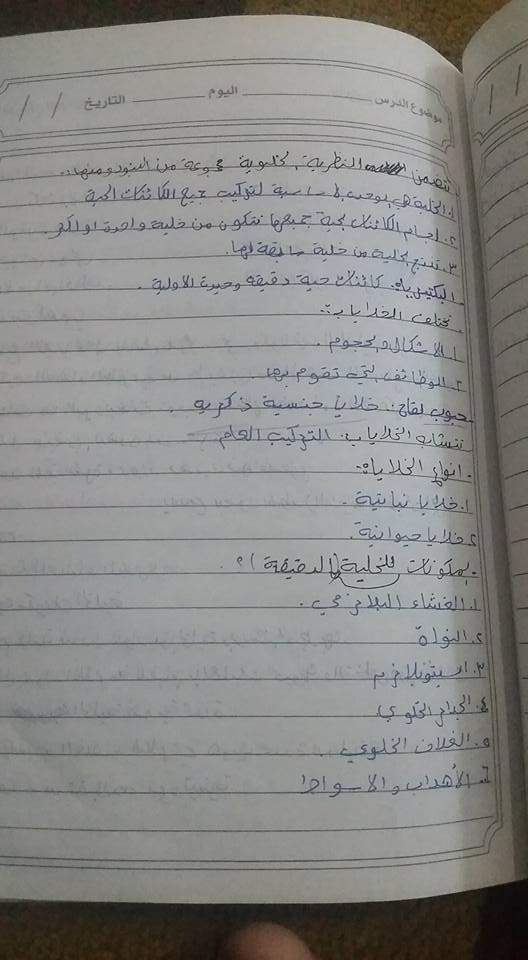 موضوع الدرس اليوم التاريخ / /
تتضمن النظرية الخلوية مجموعة من البنود ومنها:-
١. الخلية هي الوحدة الأساسية لتركيب جميع الكائنات الحية
٢. اجسام الكائنات الحية جميعها تتكون من خلية واحدة او اكثر.
٣. تنتج الخلية من خلية سابقة لها.
- البكتيريا: كائنات حية دقيقة وحيدة الاولية.
- تختلف الخلايا بـ:-
١. الاشكال والحجوم.
٢. الوظائف التي تقوم بها.
- حبوب لقاح: خلايا جنسية ذكرية.
- تتشابه الخلايا بـ: التركيب العام
- انواع الخلايا:-
١. خلايا نباتية.
٢. خلايا حيوانية.
- مكونات الخلية (الدقيقة)؟.
١. الغشاء البلازمي.
٢. النواة
٣. السيتوبلازم
٤. الجدار الخلوي
٥. الغلاف الخلوي.
٦. الأهداب والاسواط